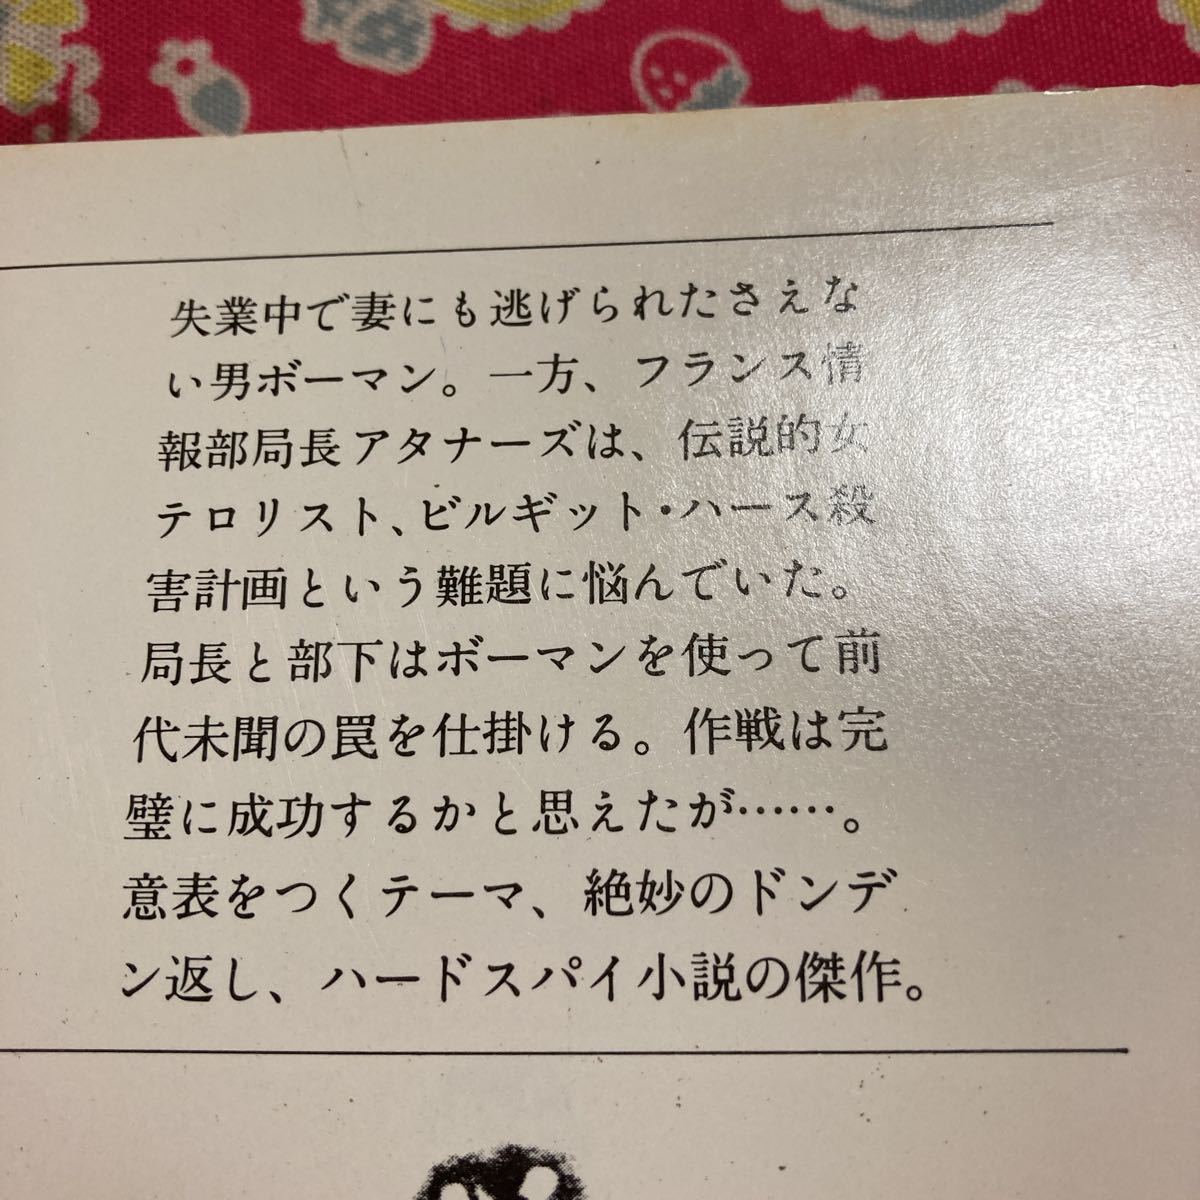 失業中で妻にも逃げられたさえな
い男ボーマン。一方、フランス情
報部局長アタナーズは、伝説的女
テロリスト、ビルギット・ハース殺
害計画という難題に悩んでいた。
局長と部下はボーマンを使って前
代未聞の罠を仕掛ける。作戦は完
璧に成功するかと思えたが……。
意表をつくテーマ、絶妙のドンデ
ン返し、ハードスパイ小説の傑作。